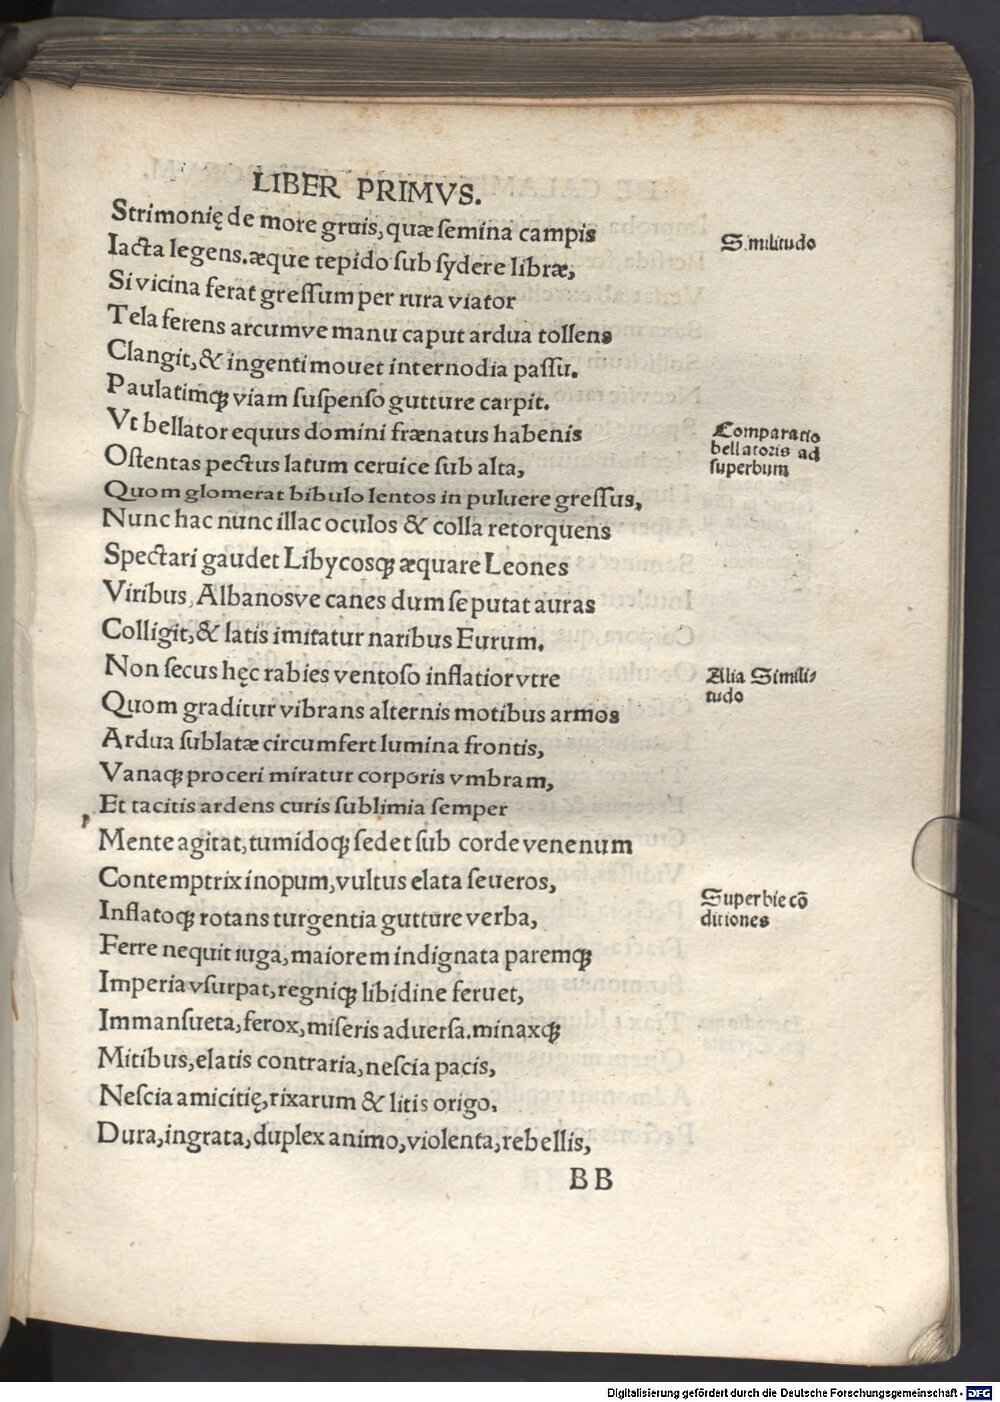 LIBER PRIMVS.
Strimonię de more gruis, quæ ſemina campis
S.militudo
Iacta legens.æque tepido ſub ſydere libræ,
Si vicina ferat greſſum per rura viator
Tela ferens arcumve manu caput ardua tollens
Clangit, & ingenti mouet internodia paſſu.
Paulatimqꝫ viam ſuſpenſo gutture carpit.
Vt bellator equus domini frænatus habenis
Comparatio
Oſtentas pectus latum ceruice ſub alta,
bellatoris ad
ſuperbum
Quom glomerat bibulo lentos in puluere greſſus,
Nunc hac nunc illac oculos & colla retorquens
Spectari gaudet Libycosqꝫ æquare Leones
Viribus, Albanosve canes dum ſe putat auras
Colligit, & latis imitatur naribus Eurum.
Non ſecus hęc rabies ventoſo inflatior vtre
Alia Simili-
tudo
Quom graditur vibrans alternis motibus armos
Ardua ſublatæ circumfert lumina frontis,
Vanaqꝫ proceri miratur corporis vmbram,
Et tacitis ardens curis ſublimia ſemper
Mente agitat, tumidoqꝫ ſedet ſub corde venenum
Contemptrix inopum, vultus elata ſeueros,
Superbie cō
ditiones
Inflatoqꝫ rotans turgentia gutture verba,
Ferre nequit iuga, maiorem indignata paremqꝫ
Imperia vſurpat, regniqꝫ libidine feruet,
Immanſueta, ferox, miſeris aduerſa.minaxqꝫ
Mitibus, elatis contraria, neſcia pacis,
Neſcia amicitię, rixarum & litis origo,
Dura, ingrata, duplex animo, violenta, rebellis,
BB
Digitalisierung gefördert durch die Deutsche Forschungsgemeinschaft - DFG